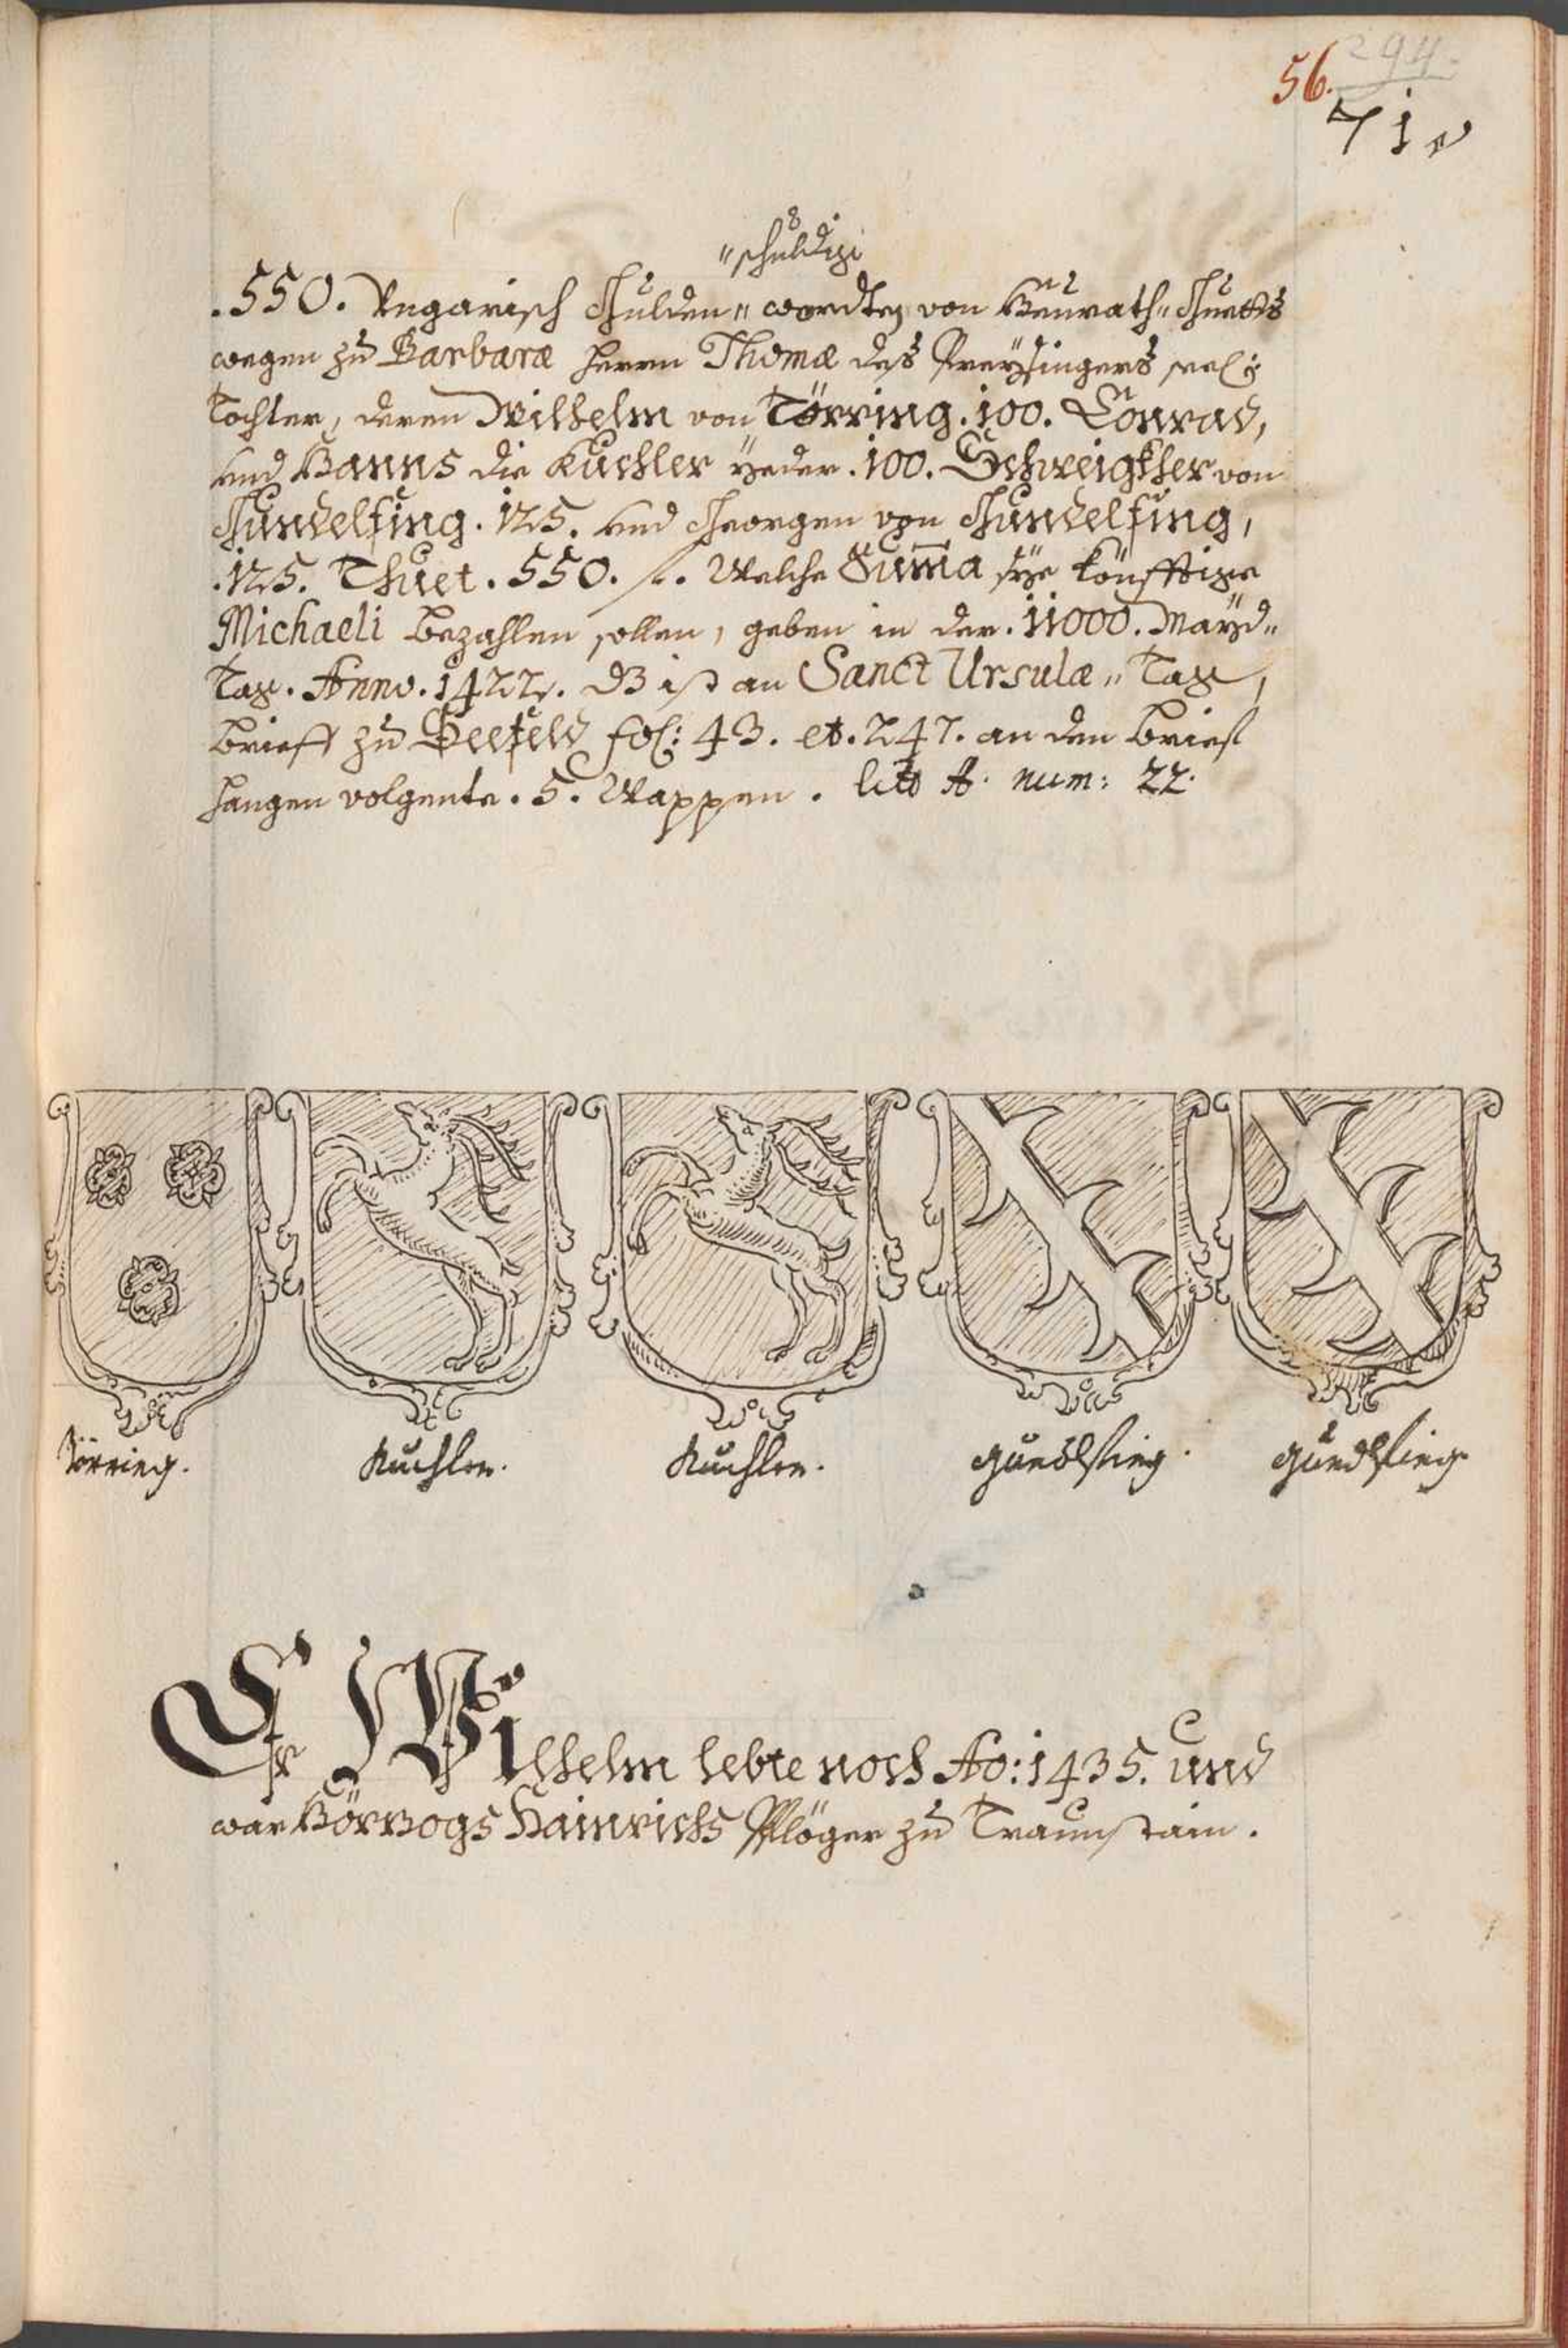 294.
56.
71
"schuldig
.550. Ungarisch Gulden" wordten von Heurath" Guetts
wegen zu Barbaræ Herrn Thomæ des Freysingers sel:
Tochter, deren Wilhelm von Törring .100. Conrad,
und Hanns die Kuchler yeder .100. Schweigkher von
Gundelfing .125. und Georgen von Gundelfing,
.125. Thuet .550. f. Welche Summa sye könfftige
Michaeli bezahlen sollen, geben in der .11000. Mayd"
Tag. Anno .1422. dz ist an Sanct Ursulæ" Tag,
Brieff zu Seefeld fol: 43. et .247. an den Brief
hangen volgente .5. Wappen. litt A. num: 22.
Törring.
Kuchler.
Kuchler.
Gundlfing.
Gundlfing
Er Wilhelm lebte noch Ao: 1435. und
war Hörzogs Hainrichs Pflöger zu Traunstain.